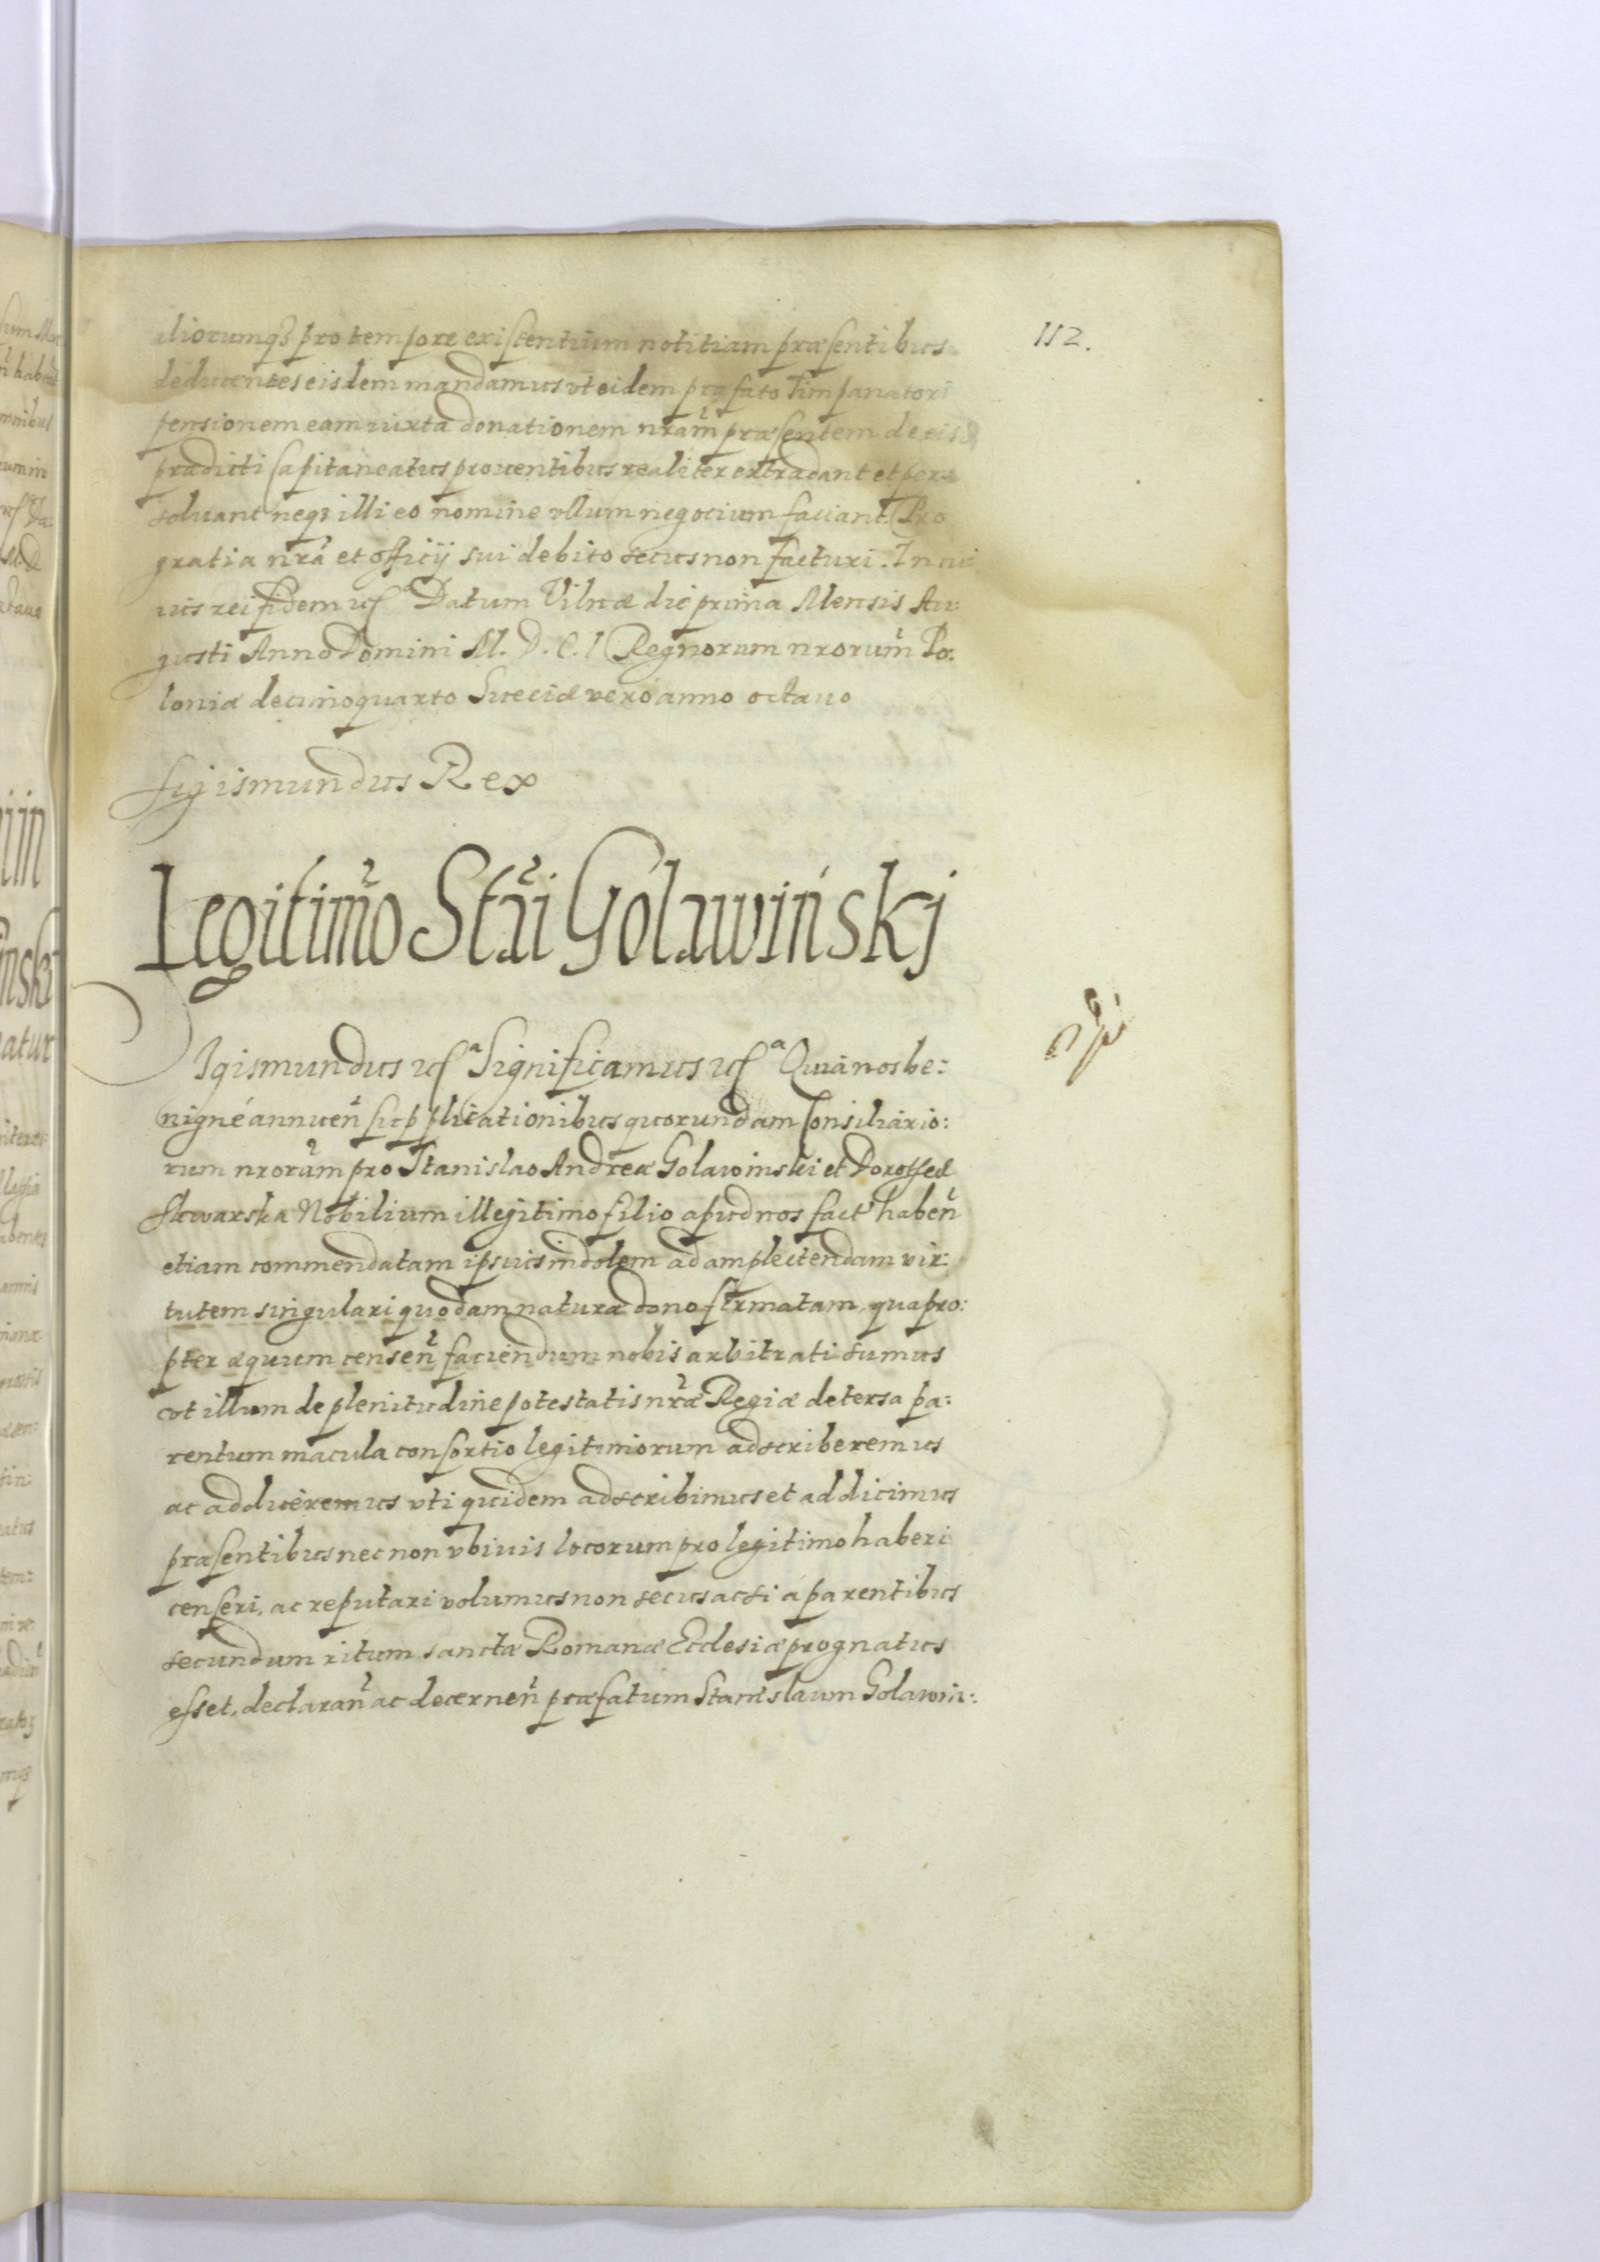 112.
aliorumq3 pro tempore existentium notitiam præsentibus
deducentes eisdem mandamus ut eidem præfato Timpanatori
pensionem eam iuxta donationem nram̃ præsentem de eis
prædicti Capitaneatus prouentibus realiter extradant et per:
soluant neq3 illi eo nomine ullum negocium faciant. Pro
gratia nrã et officij sui debito secus non facturi. In cu
ius rei fidem etc. Datum Vilnæ die prima Mensis Au:
gusti Anno Domini M. D. C. I Regnorum nrorum̃ Po:
loniæ decimoquarto Sueciæ vero anno octauo
Sigismundus Rex
Legitim̃o Stãi Golawińskj
Sigismundus etc.ª Significamus etc.ª Quia nos be:
nigné annuen̄ supplicationibus quorundam Consiliario:
rum nrorum̃ pro Stanislao Andreæ Golawinski et Dorotheæ
Skwarska Nobilium illegitimo filio apud nos fact' haben̄
etiam commendatam ipsius indolem ad amplectendam vir:
tutem singulari quodam naturæ dono firmatam, quapro:
pter æquum censen̄ faciendum nobis arbitrati sumus
ut illum de plenitudine potestatis nræ̃ Regiæ detersa pa:
rentum macula consortio legitimorum adscriberemus
ac adduceremus uti quidem adscribimus et addicimus
præsentibus nec non ubiuis locorum pro legitimo haberi
censeri, ac reputari volumus non secus ac si á parentibus
secundum ritum sanctæ Romanæ Ecclesiæ prognatus
esset, declaran̄ ac decernen̄ præfatum Stanislaum Golawin: